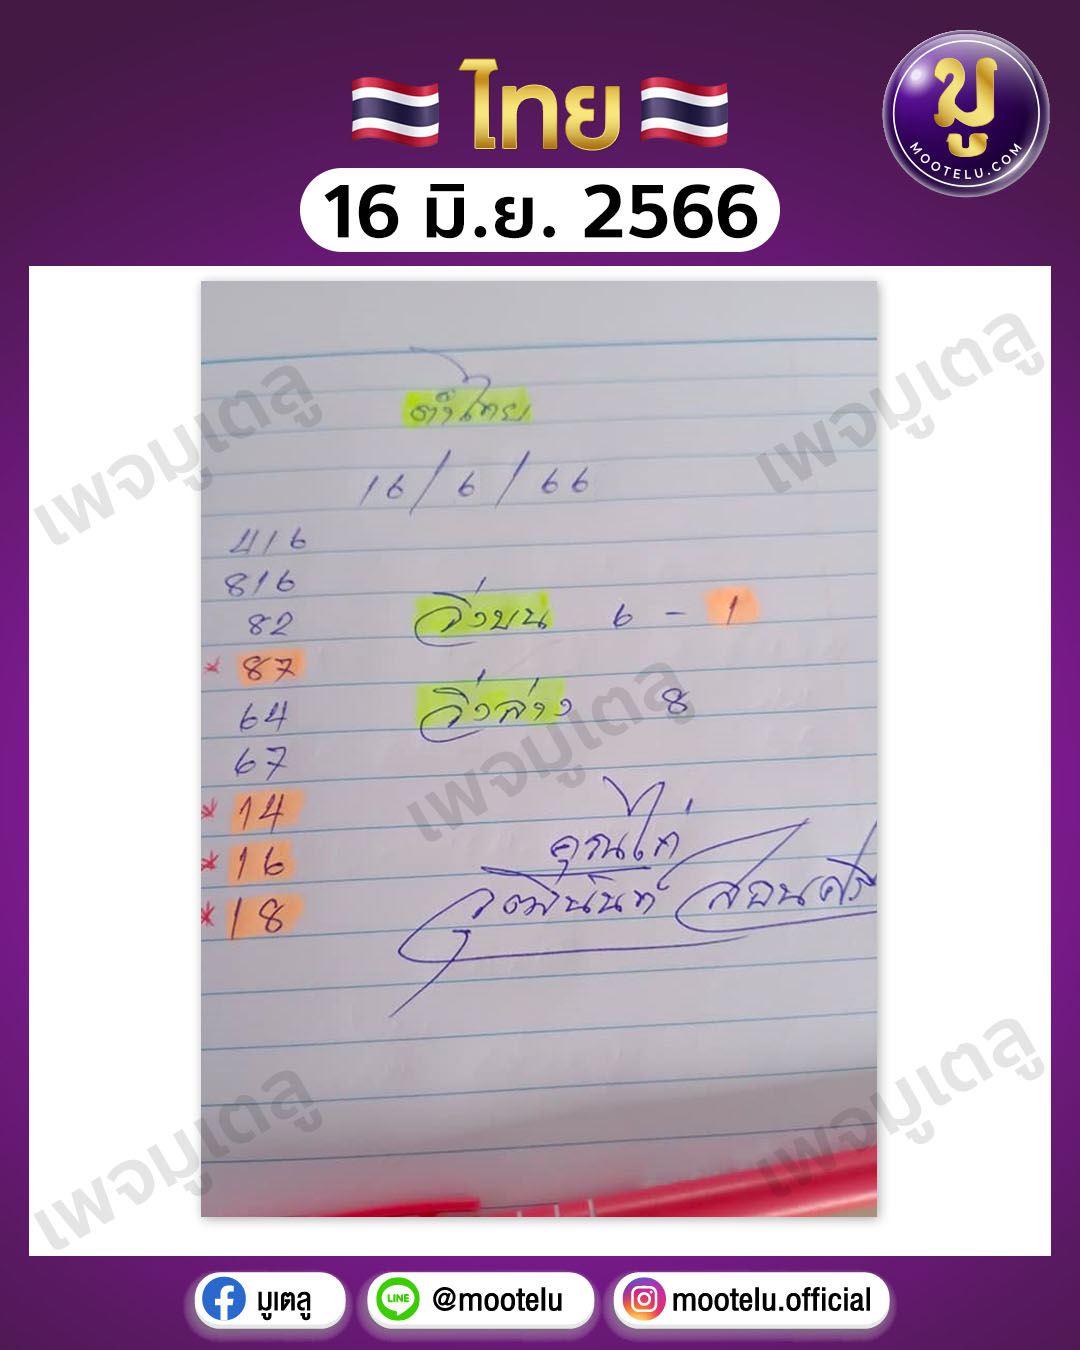 ไทย
มู
MOOTELU.COM
16 มิ.ย. 2566
คำไทย
16/6/66
416
816
82
วิ่งบน 6 - 1
* 87
วิ่งล่าง 8
64
67
* 14
* 16
คุณไก่
* 18
วุฒินันท์ สอนศรี
เพจมูเตลู
เพจมูเตลู
เพจมูเตลู
เพจมูเตลู
เพจมูเตลู
มูเตลู
LINE @mootelu
mootelu.official